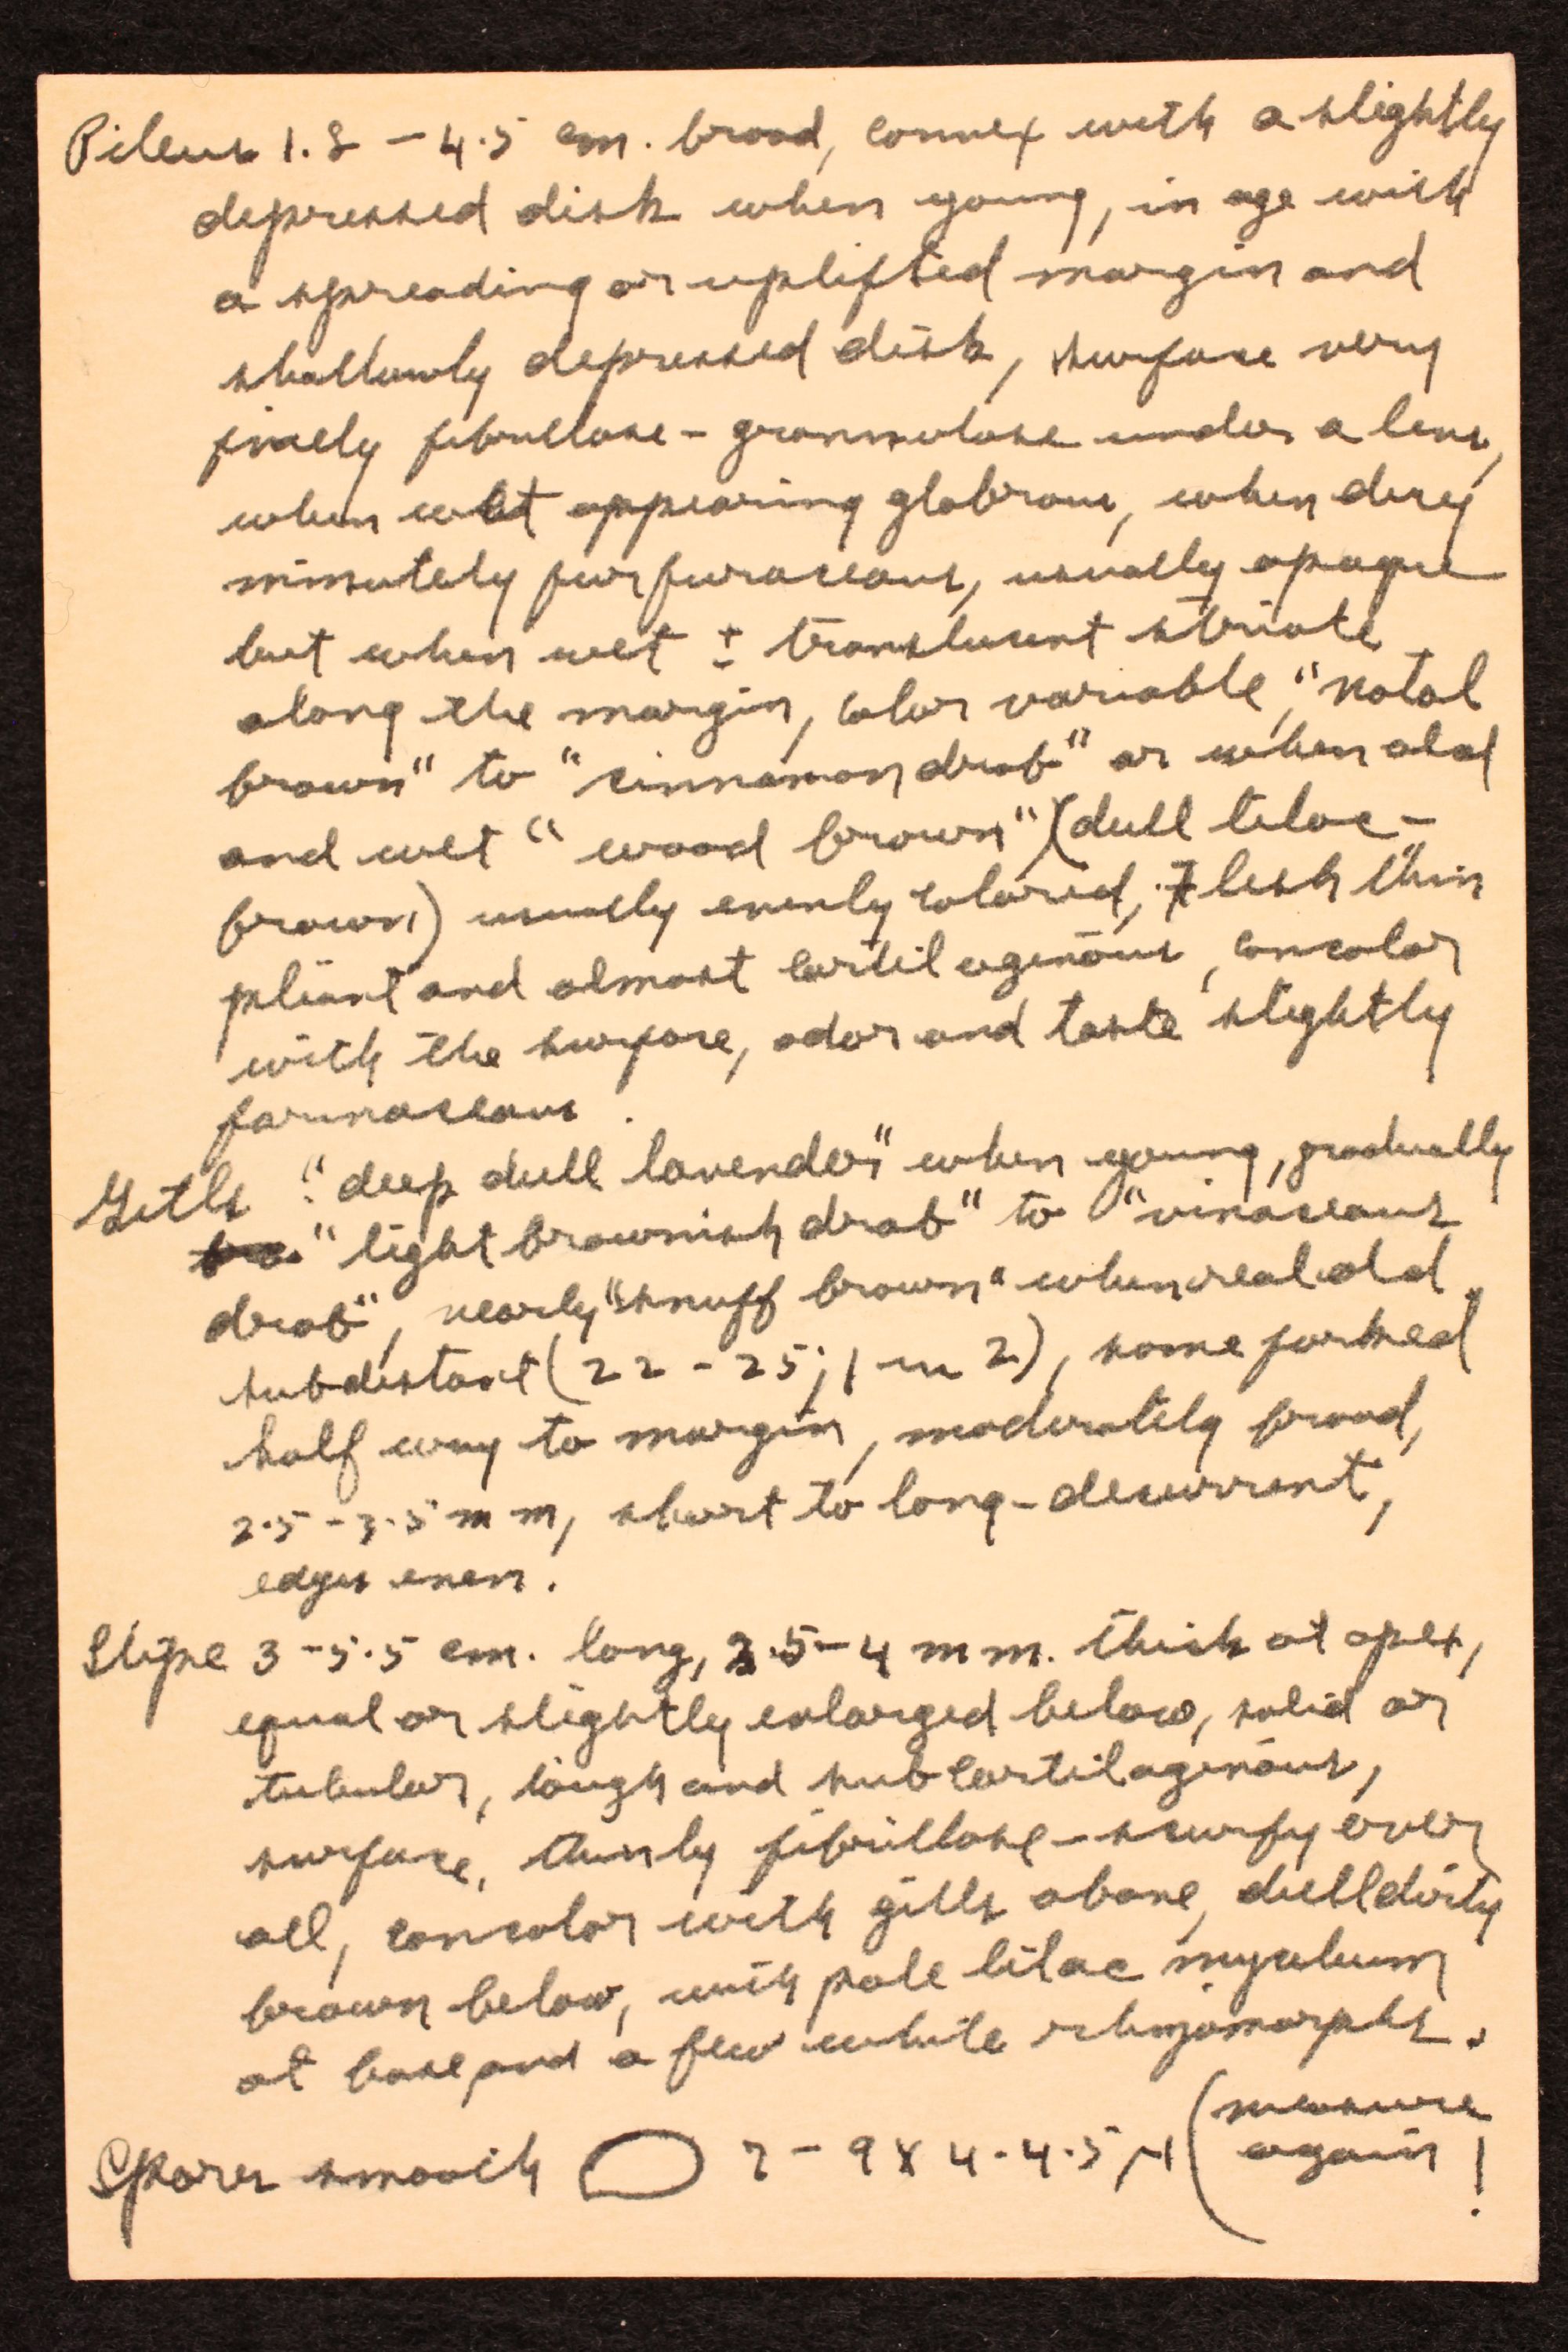 Pileus 1.8 – 4.5 cm. broad, convex with a slightly
depressed disk when young, in age with
a spreading or uplifted margin and
shallowly depressed disk, surface very
finely fibrillose – granulose under a lens,
when wet appearing glabrous, when dry
minutely furfuraceous, usually opaque
but when wet ± translucent striate
along the margin, color variable, "natal
brown" to "cinnamon drab" or when old
and wet "wood brown" (dull lilac –
brown) usually evenly colored, flesh thin
pliant and almost cartilagenous, concolor
with the surface, odor and taste slightly
farinaceous.
Gills "deep dull lavender" when young, gradually
"light brownish drab" to "vinaceous
drab", nearly "snuff brown" when real old,
subdistant (22 – 25; 1 in 2), some forked
half way to margin, moderately broad,
2.5 – 3.5 mm, short to long – decurrent,
edges even.
Stipe 3 – 5.5 cm. long, 2.5 – 4 mm. thick at apex,
equal or slightly enlarged below, solid or
tubular, tough and subcartilagenous,
surface, thinly fibrillose – scurfy over
all, concolor with gills above, dull dirty
brown below, with pale lilac mycelium
at base and a few white rhizomorphs.
Spores smooth 7 – 9 x 4 - 4.5 μ (measure
again!